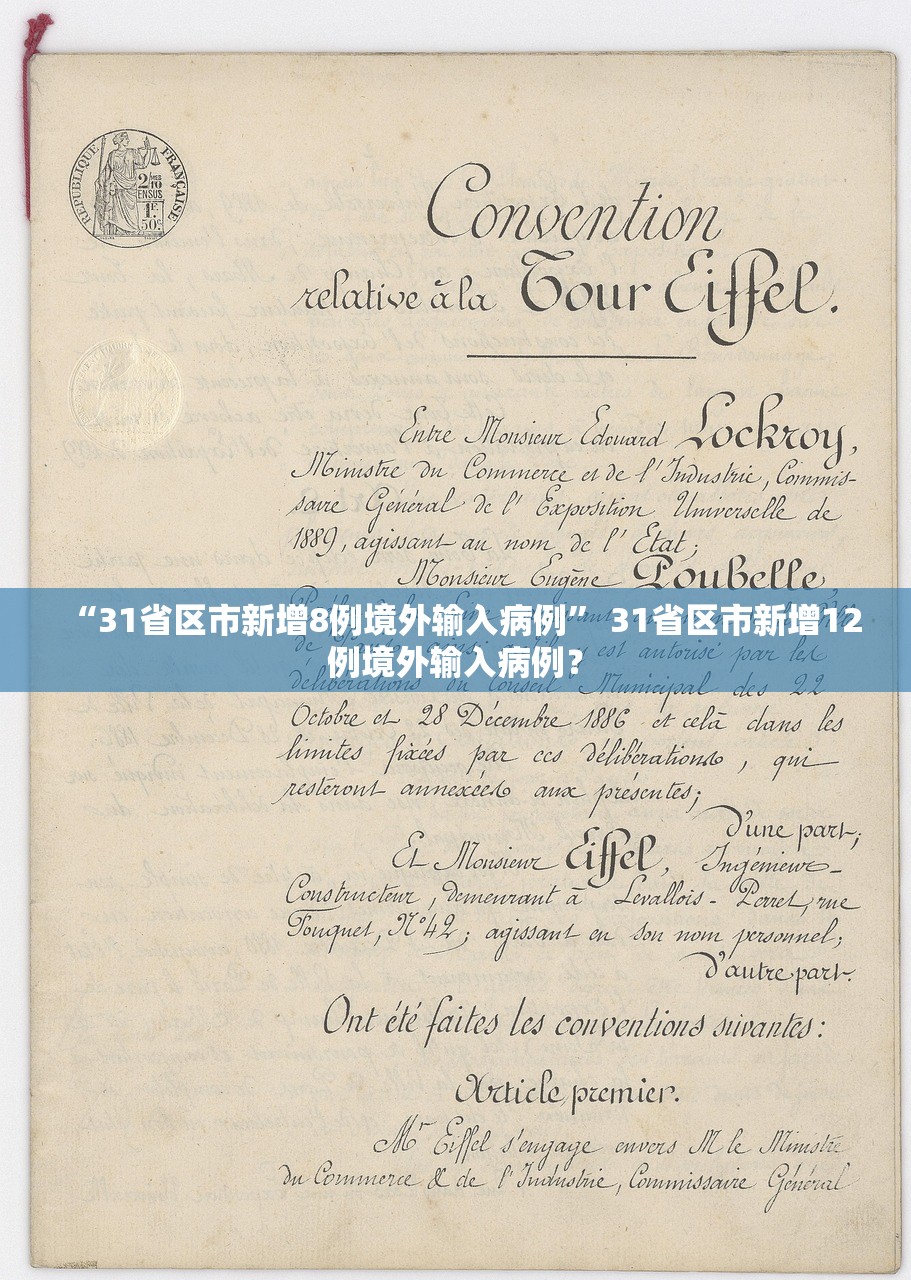 RÉPUBLIQUE FRANÇAISE
2/10
EN SUS
1F.
50c.
Convention
relative à la Tour Eiffel.
Entre Monsieur Edouard Lockroy,
Ministre du Commerce et de l'Industrie, Commis-
saire Général de l'Exposition Universelle de
1889, agissant au nom de l'Etat;
Monsieur Eugène Poubelle
“31省区市新增8例境外输入病例” 31省区市新增12
例境外输入病例？
est autorisé par les
délibérations du Conseil Municipal des 22
Octobre et 28 Décembre 1886 et celà dans les
limites fixées par ces délibérations, qui
resteront annexées aux présentes;
D'une part;
Et Monsieur Eiffel, Ingénieur-
Constructeur, demeurant à Levallois-Perret, rue
Fouquet, N° 42; agissant en son nom personnel;
D'autre part.
Ont été faites les conventions suivantes:
Article premier.
Mr Eiffel s'engage envers M le Ministre
du Commerce & de l'Industrie, Commissaire Général